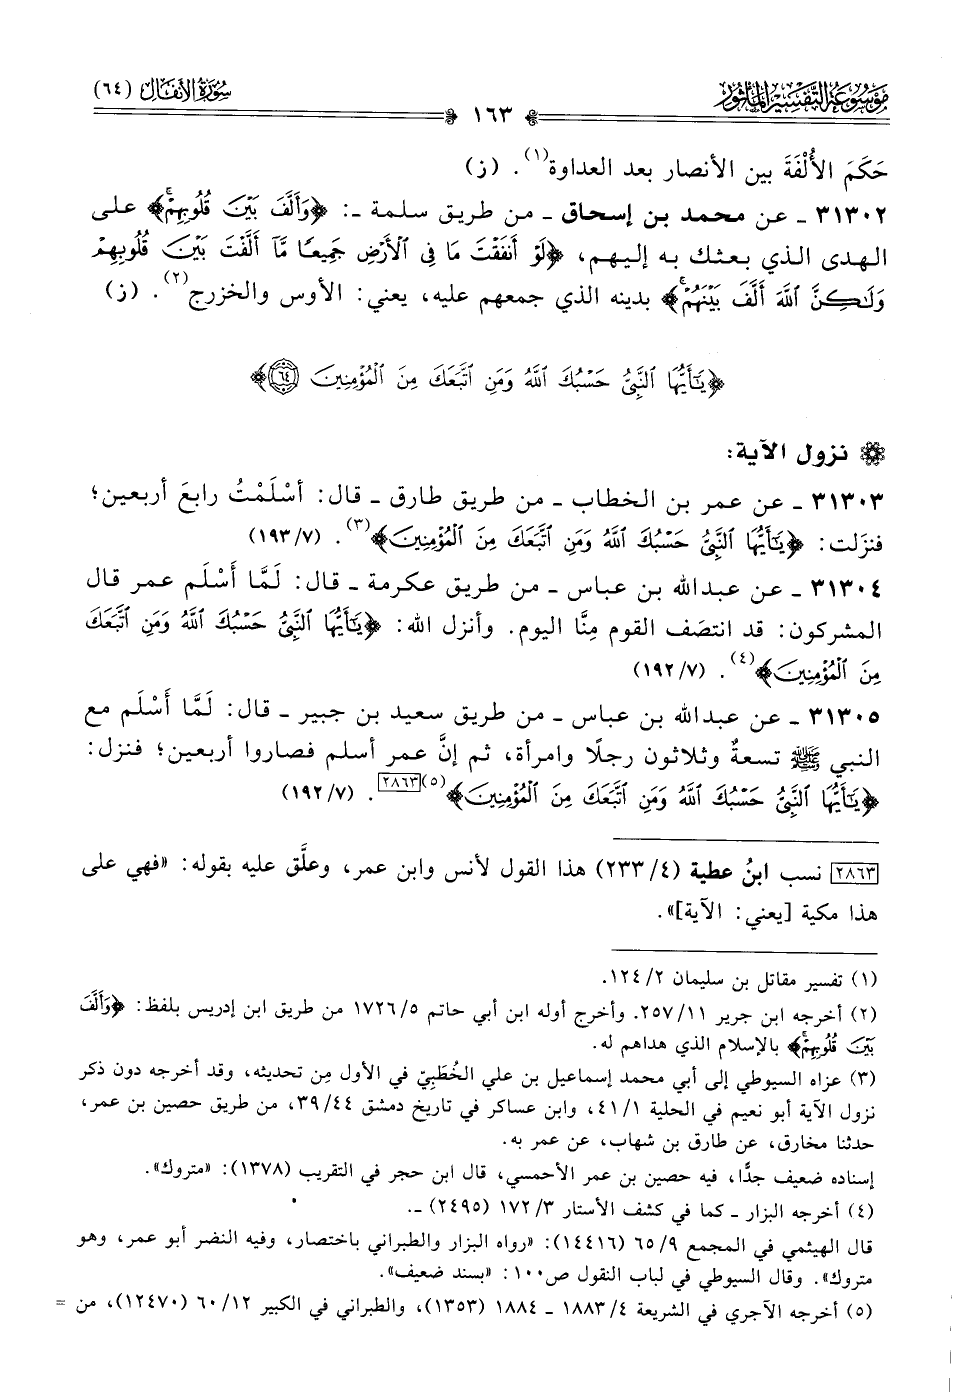 موسوعة التفسير المأثور
سورة الأنفال (٦٤)
١٦٣
حَكَمَ الأُلْفَةَ بين الأنصار بعد العداوة(١). (ز)
٣١٣٠٢ ـ عن محمد بن إسحاق ـ من طريق سلمة ـ: ﴿وَأَلَّفَ بَيْنَ قُلُوبِهِمْۚ﴾ على
الهدى الذي بعثك به إليهم، ﴿لَوْ أَنفَقْتَ مَا فِى ٱلْأَرْضِ جَمِيعًا مَّآ أَلَّفْتَ بَيْنَ قُلُوبِهِمْ
وَلَٰكِنَّ ٱللَّهَ أَلَّفَ بَيْنَهُمْۚ﴾ بدينه الذي جمعهم عليه، يعني: الأوس والخزرج(٢). (ز)
﴿يَٰٓأَيُّهَا ٱلنَّبِىُّ حَسْبُكَ ٱللَّهُ وَمَنِ ٱتَّبَعَكَ مِنَ ٱلْمُؤْمِنِينَ ٦٤﴾
نزول الآية:
٣١٣٠٣ ـ عن عمر بن الخطاب ـ من طريق طارق ـ قال: أسْلَمْتُ رابعَ أربعين؛
فنزَلت: ﴿يَٰٓأَيُّهَا ٱلنَّبِىُّ حَسْبُكَ ٱللَّهُ وَمَنِ ٱتَّبَعَكَ مِنَ ٱلْمُؤْمِنِينَ﴾(٣). (٧/١٩٣)
٣١٣٠٤ ـ عن عبدالله بن عباس ـ من طريق عكرمة ـ قال: لَمَّا أَسْلَم عمر قال
المشركون: قد انتصَف القوم مِنَّا اليوم. وأنزل الله: ﴿يَٰٓأَيُّهَا ٱلنَّبِىُّ حَسْبُكَ ٱللَّهُ وَمَنِ ٱتَّبَعَكَ
مِنَ ٱلْمُؤْمِنِينَ﴾(٤). (٧/١٩٢)
٣١٣٠٥ ـ عن عبدالله بن عباس ـ من طريق سعيد بن جبير ـ قال: لَمَّا أَسْلَم مع
النبي ﷺ تسعةٌ وثلاثون رجلًا وامرأة، ثم إنَّ عمر أسلم فصاروا أربعين؛ فنزل:
﴿يَٰٓأَيُّهَا ٱلنَّبِىُّ حَسْبُكَ ٱللَّهُ وَمَنِ ٱتَّبَعَكَ مِنَ ٱلْمُؤْمِنِينَ﴾(٥)[٢٨٦٣]. (٧/١٩٢)
[٢٨٦٣] نسب ابنُ عطية (٤/٢٣٣) هذا القول لأنس وابن عمر، وعلَّق عليه بقوله: «فهي على
هذا مكية [يعني: الآية]».
(١) تفسير مقاتل بن سليمان ٢/١٢٤.
(٢) أخرجه ابن جرير ١١/٢٥٧. وأخرج أوله ابن أبي حاتم ٥/١٧٢٦ من طريق ابن إدريس بلفظ: ﴿وَأَلَّفَ
بَيْنَ قُلُوبِهِمْۚ﴾ بالإسلام الذي هداهم له.
(٣) عزاه السيوطي إلى أبي محمد إسماعيل بن علي الخُطَبِيّ في الأول مِن تحديثه، وقد أخرجه دون ذكر
نزول الآية أبو نعيم في الحلية ١/٤١، وابن عساكر في تاريخ دمشق ٤٤/٣٩، من طريق حصين بن عمر،
حدثنا مخارق، عن طارق بن شهاب، عن عمر به.
إسناده ضعيف جدًّا، فيه حصين بن عمر الأحمسي، قال ابن حجر في التقريب (١٣٧٨): «متروك».
(٤) أخرجه البزار ـ كما في كشف الأستار ٣/١٧٢ (٢٤٩٥) ـ.
قال الهيثمي في المجمع ٩/٦٥ (١٤٤١٦): «رواه البزار والطبراني باختصار، وفيه النضر أبو عمر، وهو
متروك». وقال السيوطي في لباب النقول ص١٠٠: «بسند ضعيف».
(٥) أخرجه الآجري في الشريعة ٤/١٨٨٣ ـ ١٨٨٤ (١٣٥٣)، والطبراني في الكبير ١٢/٦٠ (١٢٤٧٠)، من =